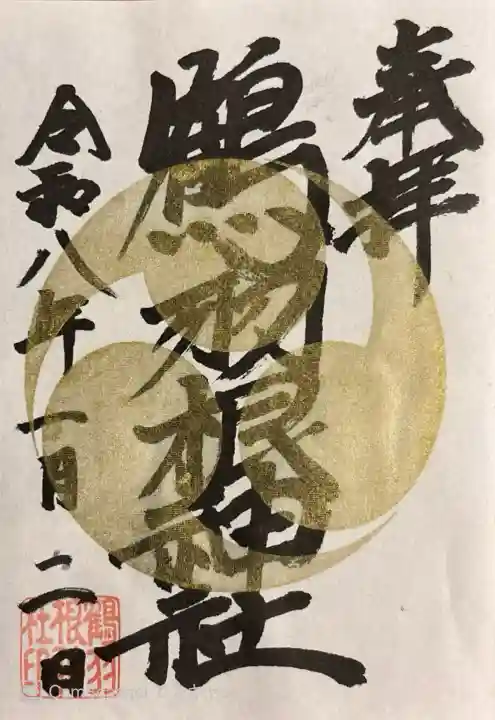 奉拝
鶴羽根神社
令和八年一月二日
鶴羽
根
社印